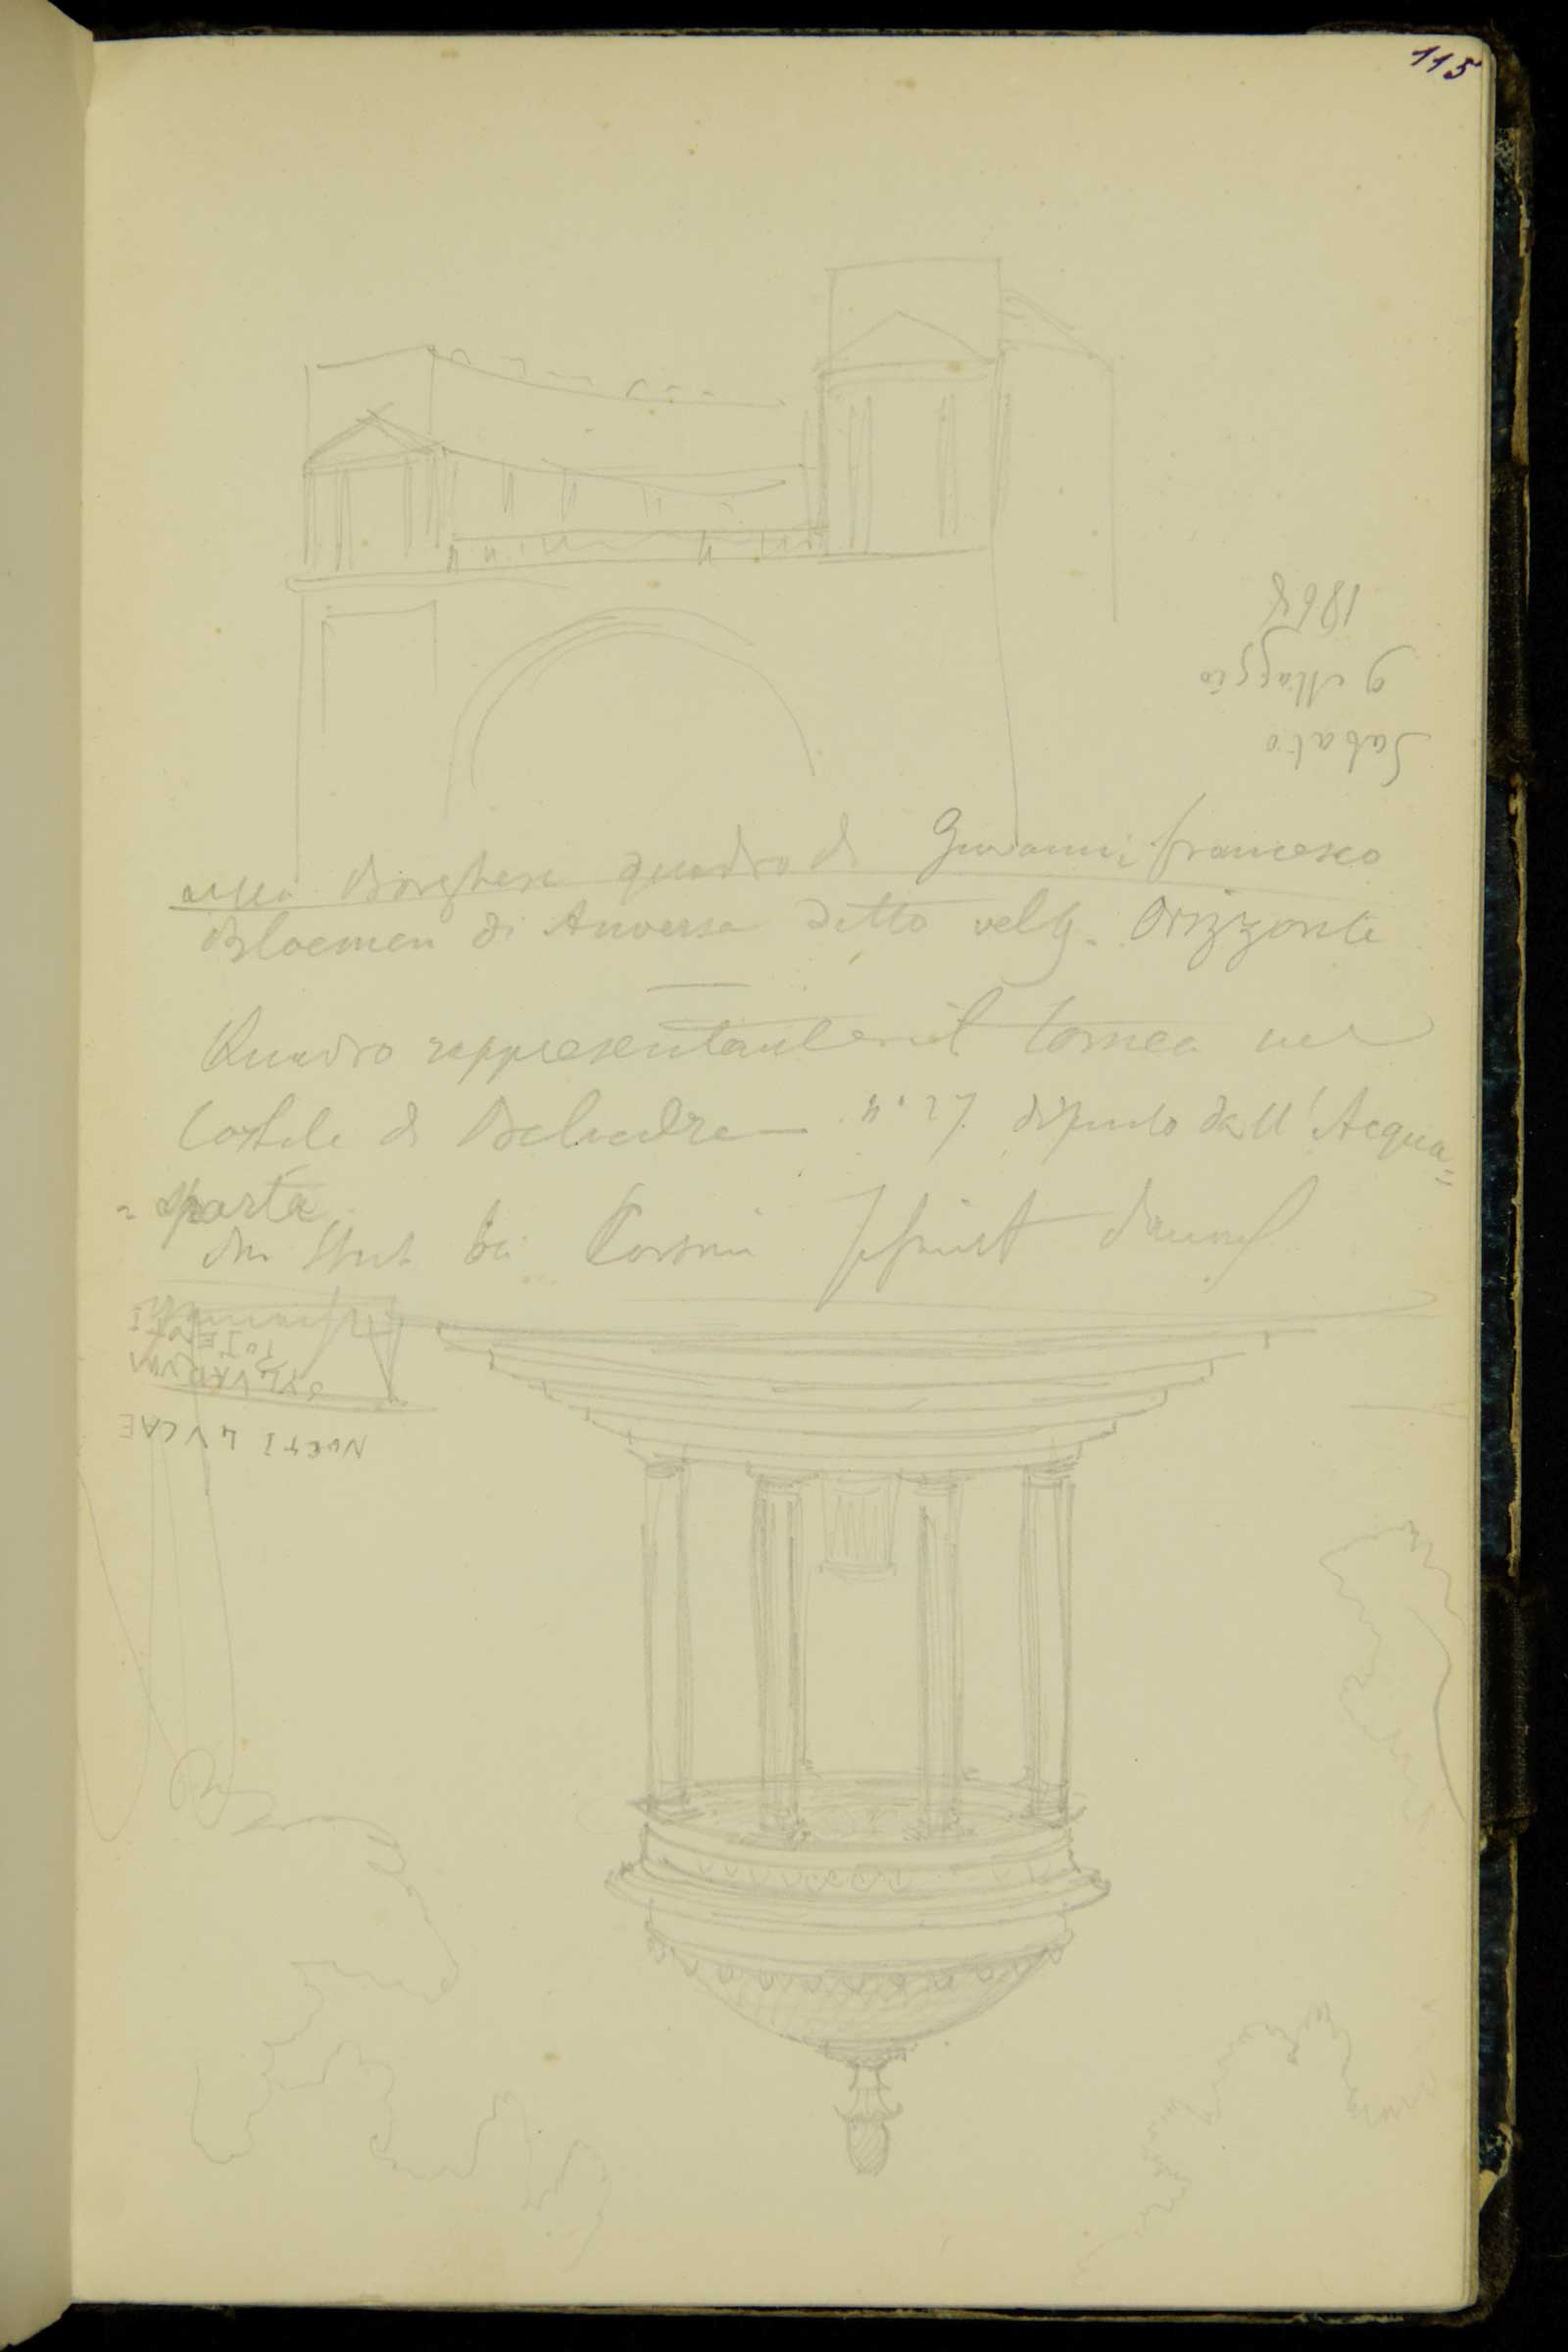 115
Sabato
9 Maggio
1868
Borghese quadro di Giovanni francesco
Bloemen di Anversa detto volg. Orizzonte
Quadro rappresentante il torneo nel
Cortile di Belvedere n° 27. dipinto dall' Acqua=
= sparta
bei Corsini
NOCTI LVCAE
SYLVARVM
POTENTI